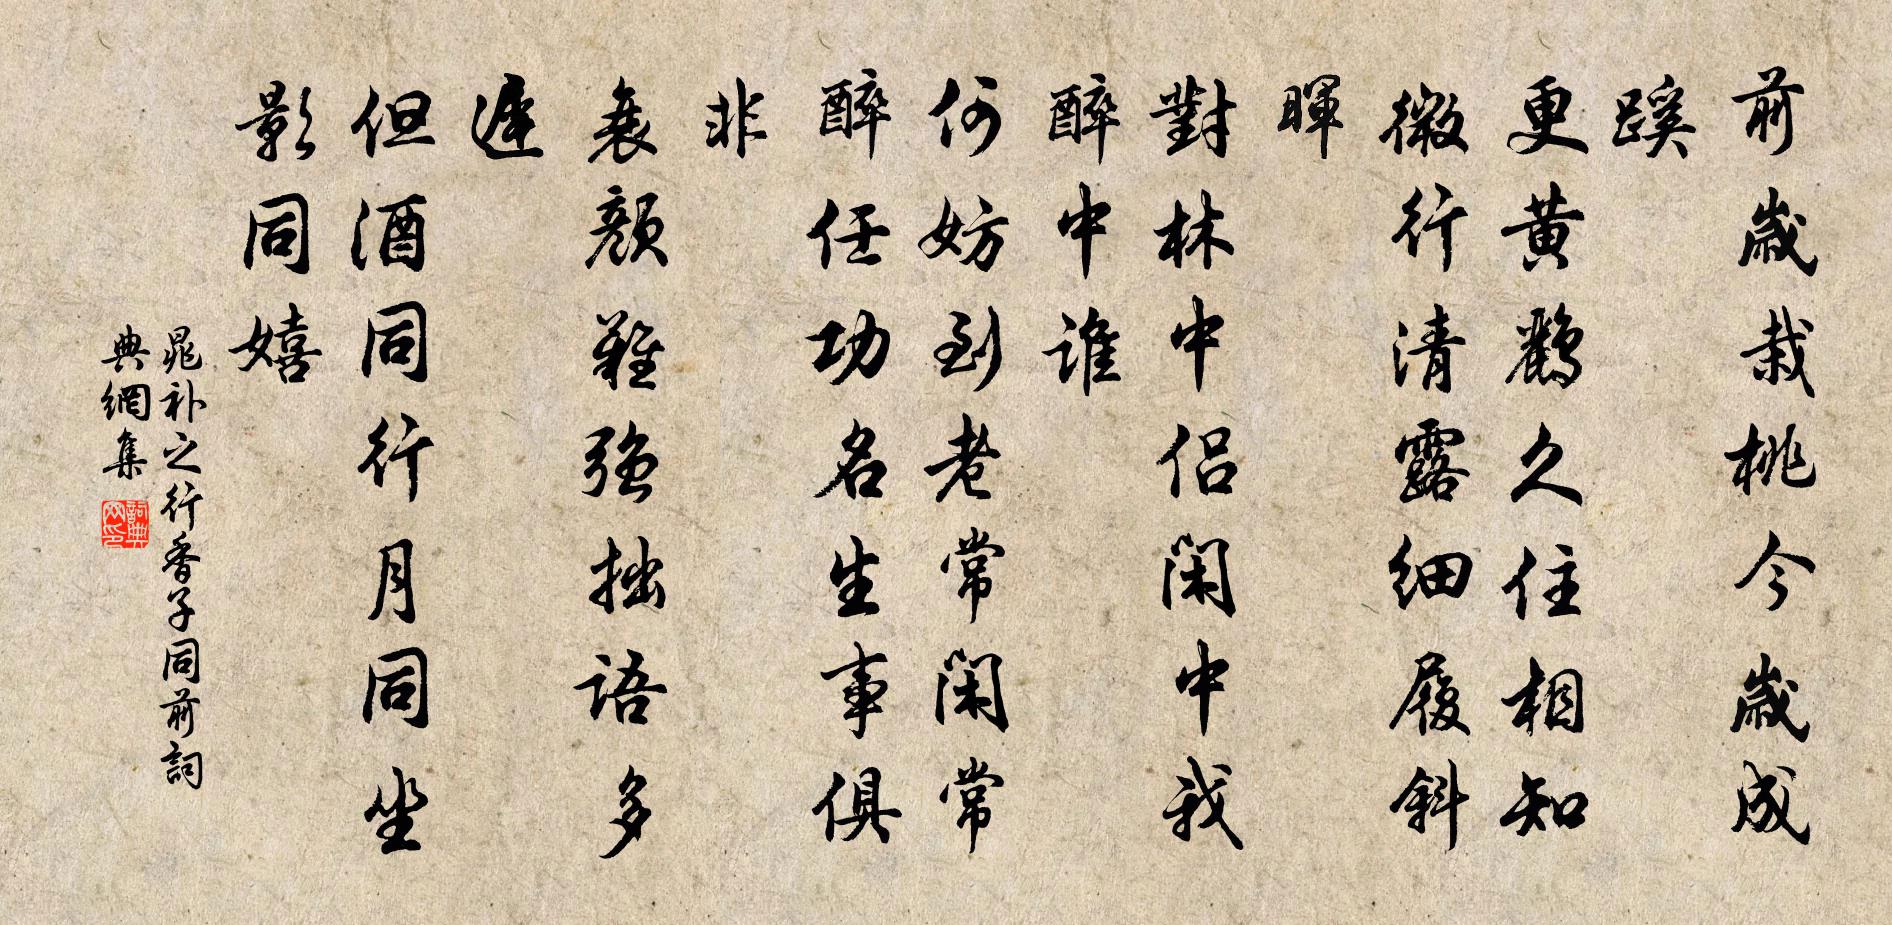 前歲栽桃今歲成
蹊
更黃鸝久住相知
微行清露細履斜
暉
對林中侶閑中我
醉中誰
何妨到老常閑常
醉任功名生事俱
非
衰顏難強拙語多
遲
但酒同行月同坐
影同嬉
晁补之行香子同前詞
典網集
詞典網印